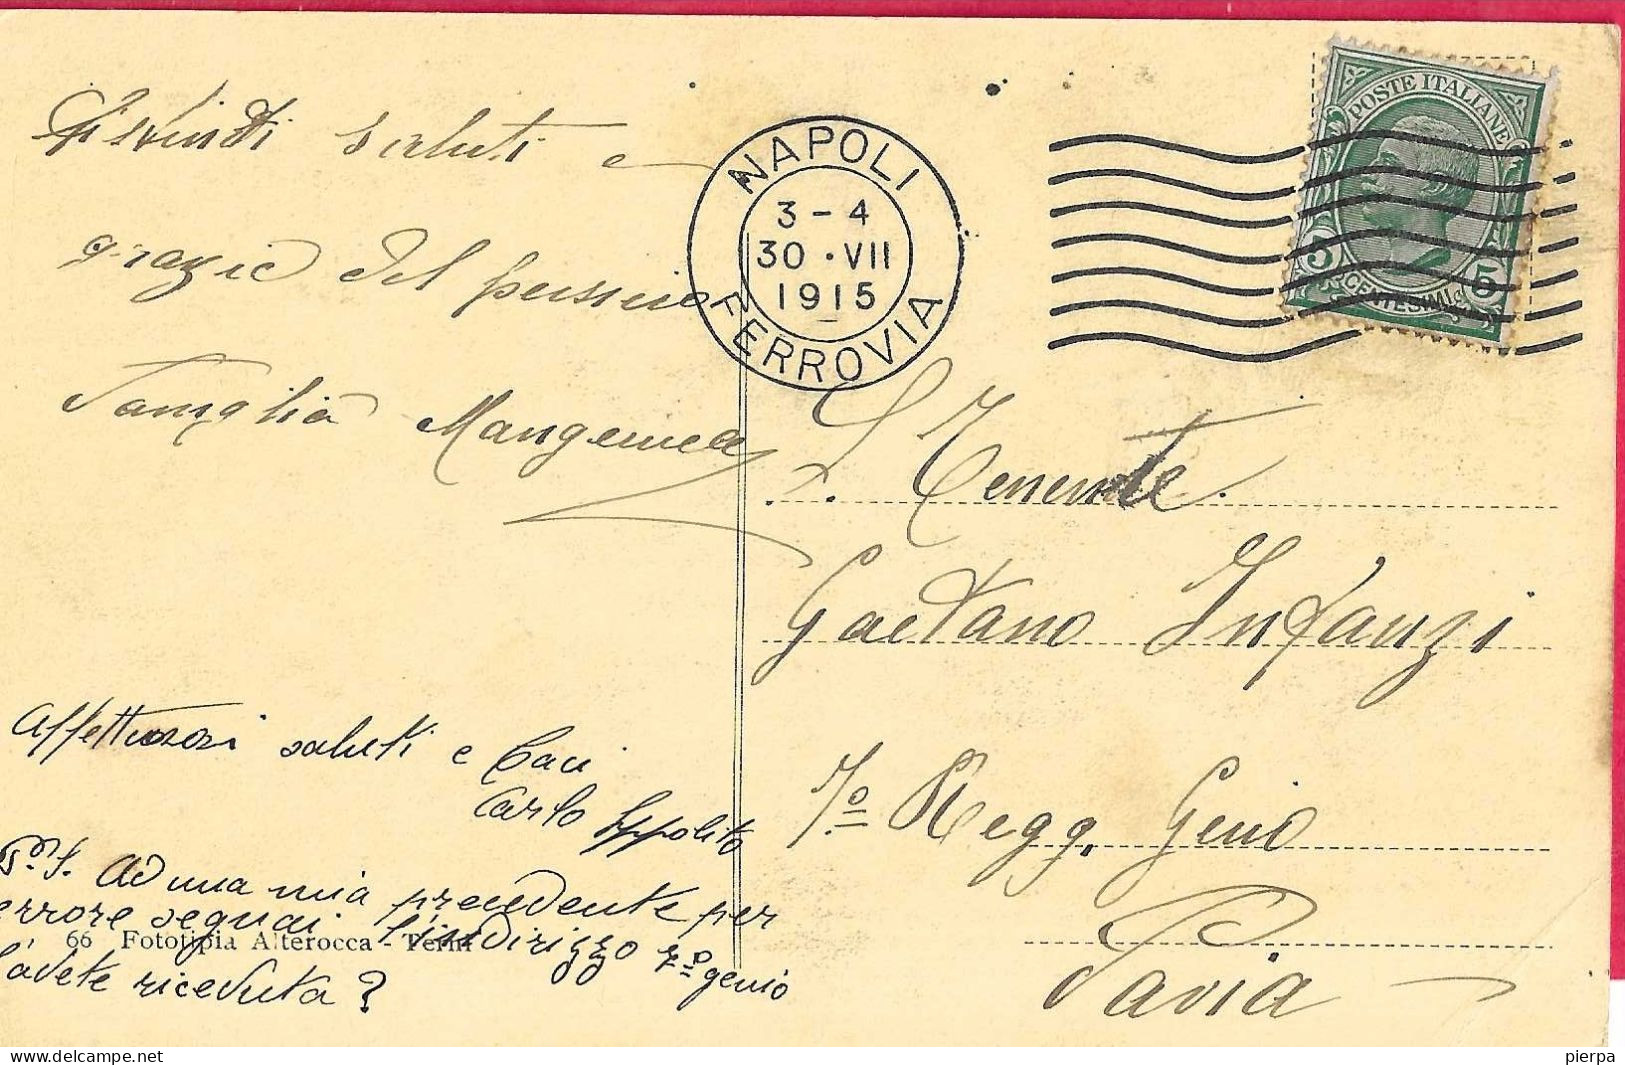 saluti e
grazie del pensiero
Famiglia
Affettuosi saluti e baci
Carlo Ippolito
P.S. Ad una mia precedente per
errore segnai l'indirizzo 7º genio
l'avete ricevuta?
66 Fototipia Alterocca - Terni
NAPOLI
3 - 4
30 · VII
1915
FERROVIA
POSTE ITALIANE
5 CENTESIMI 5
S. Tenente
Gaetano Infanzi
1º Regg. Genio
Pavia
pierpa